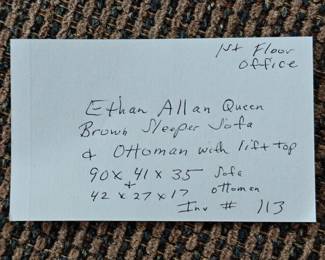 1st Floor
office
Ethan Allan Queen
Brown Sleeper Sofa
& Ottoman with lift top
90 x 41 x 35 Sofa
+
42 x 27 x 17 ottoman
Inv # 113